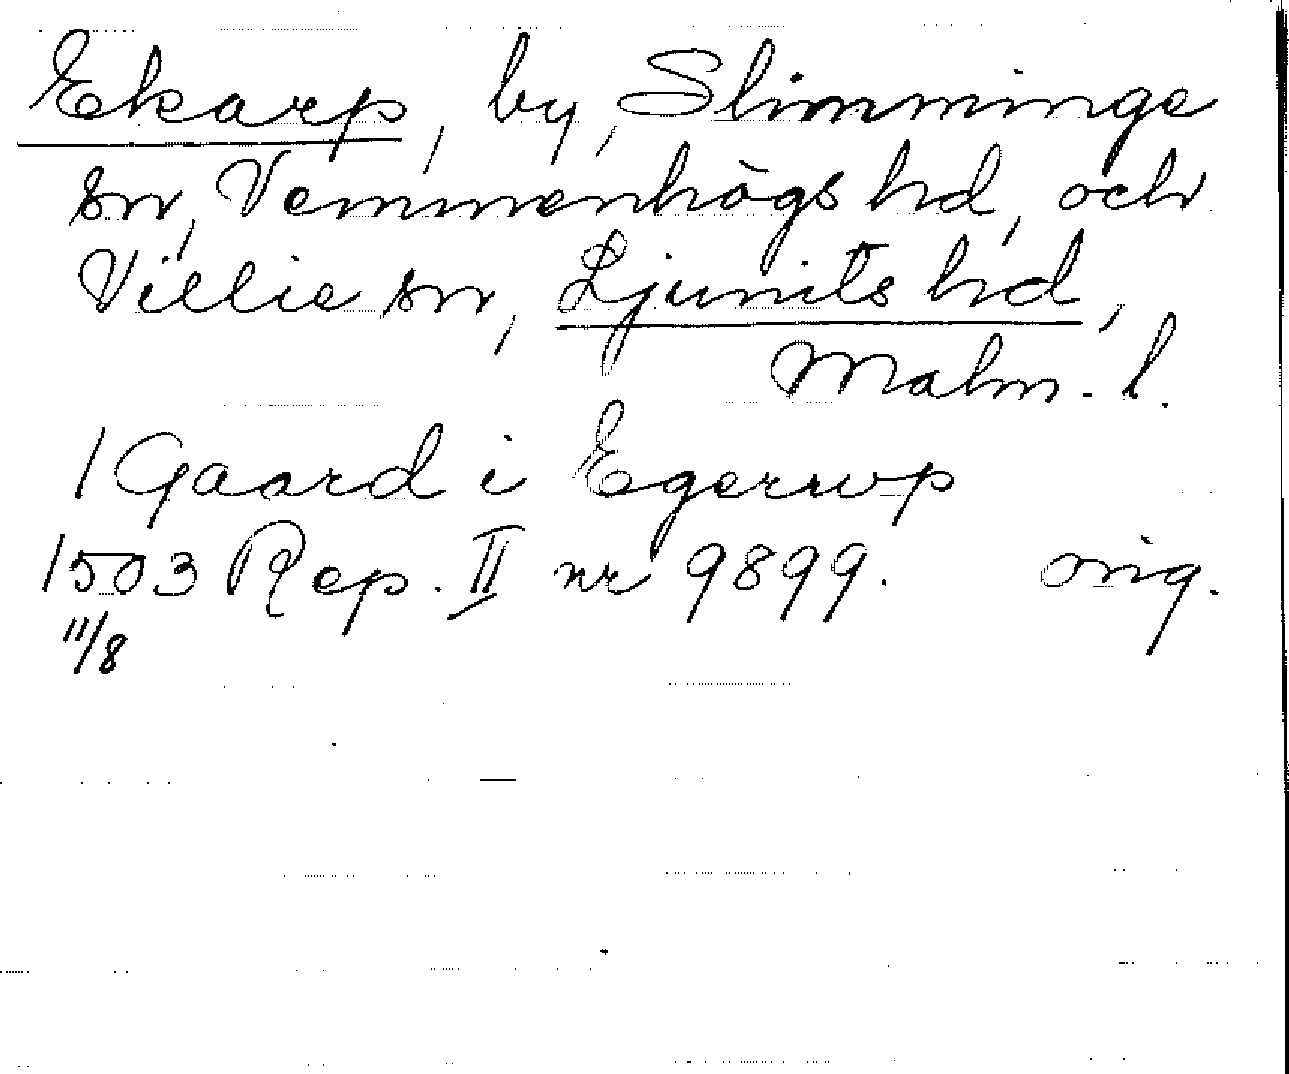 Ekarp, by, Slimminge
sn, Vemmenhögs hd, och
Villie sn, Ljunits hd,
Malm. l.
1 Gaard i Egerwp
1503 Rep. II nr 9899. orig.
11/8